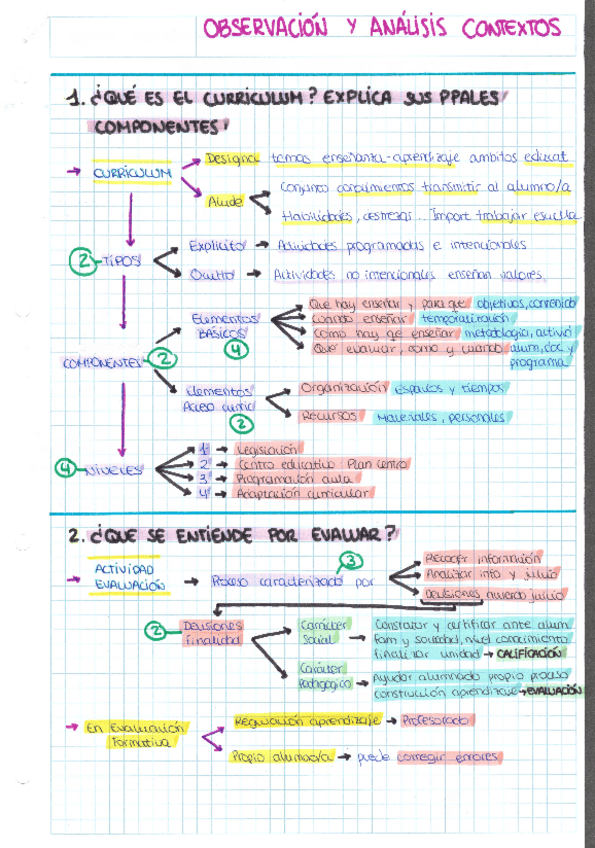 OBSERVACIÓN Y ANÁLISIS CONTEXTOS
1. ¿QUÉ ES EL CURRÍCULUM? EXPLICA SUS PPALES
COMPONENTES
→ CURRÍCULUM
Designa temas enseñanza-aprendizaje ámbitos educat
Alude
Conjunto conocimientos transmitir al alumno/a
Habilidades, destrezas... Import trabajar escuela
2 TIPOS
Explícito → Actividades programadas e intencionales
Oculto → Actividades no intencionales enseñan valores.
COMPONENTES 2
Elementos
BÁSICOS
4
Que hay enseñar y para que objetivos, contenido
Cuándo enseñar temporalización
Como hay qe enseñar metodología, activi
Que evaluar, como y cuando alum, doc y
programa
Elementos
Acceso curric
2
Organización espacios y tiempos
Recursos Materiales, personales
4 NIVELES
1º → Legislación
2º → Centro educativo Plan centro
3º → Programación aula
4º → Adaptación curricular
2. ¿QUE SE ENTIENDE POR EVALUAR?
→ ACTIVIDAD
EVALUACIÓN
→ Proceso caracterizado por
3
Recoger información
Analizar info y juicio
Decisiones acuerdo juicio
2 Decisiones
Finalidad
Carácter
Social
→ Constatar y certificar ante alum
fam y sociedad, nivel conocimiento
finalizar unidad → CALIFICACIÓN
Carácter
Pedagógico
→ Ayudar alumnado propio proceso
construcción aprendizaje → EVALUACIÓN
→ En Evaluación
Formativa
Regulación aprendizaje → Profesorado
Propio alumno/a → puede corregir errores